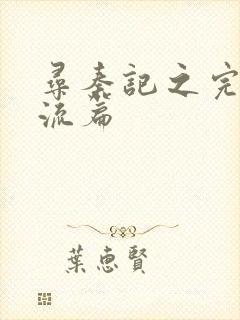 尋秦記之完
流篇
葉惠賢